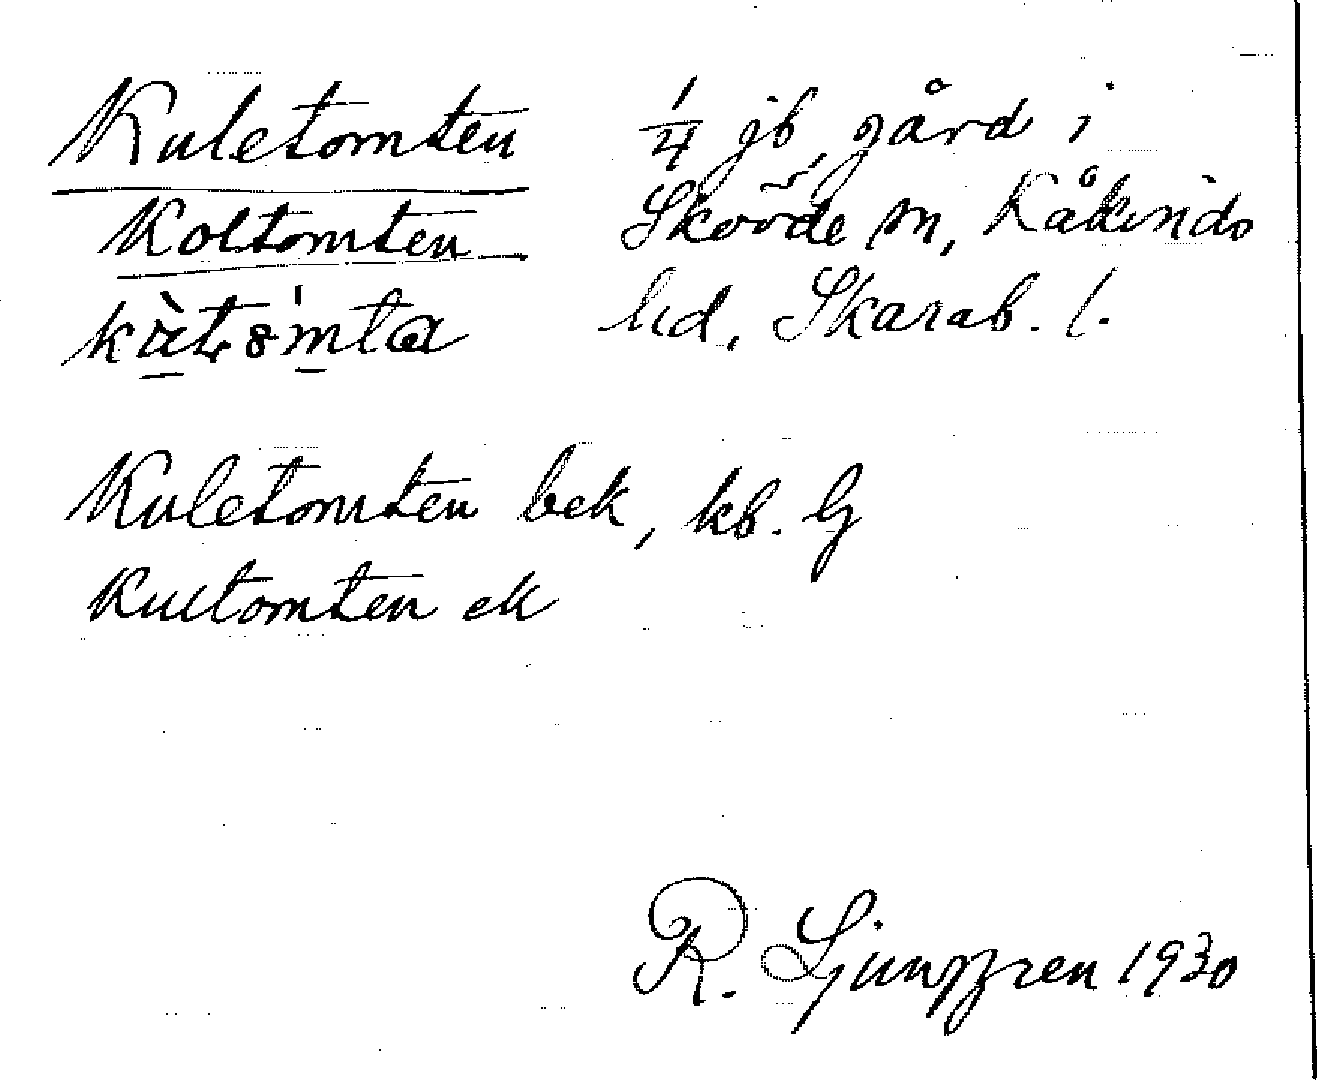 Kuletomten
Koltomten
1/4 jb, gård i
Skövde sn, Kåkinds
hd, Skarab. l.
Kuletomten bek, kb. G
Kultomten ek
R. Ljunggren 1930